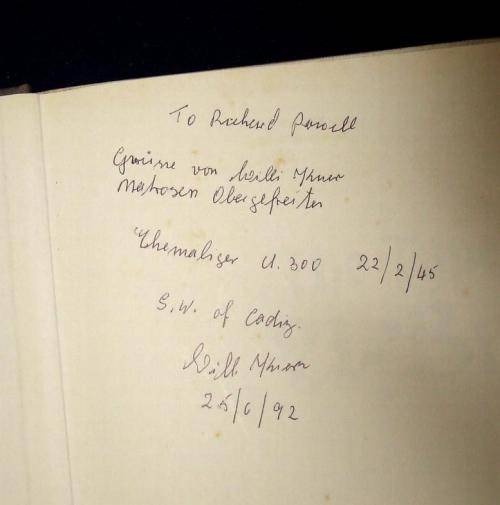 To Richard Powell
Grüsse von Willi
Matrosen Obergefreiter
Ehemaliger U. 300 22/2/45
S.W. of Cadiz.
Willi
25/6/92